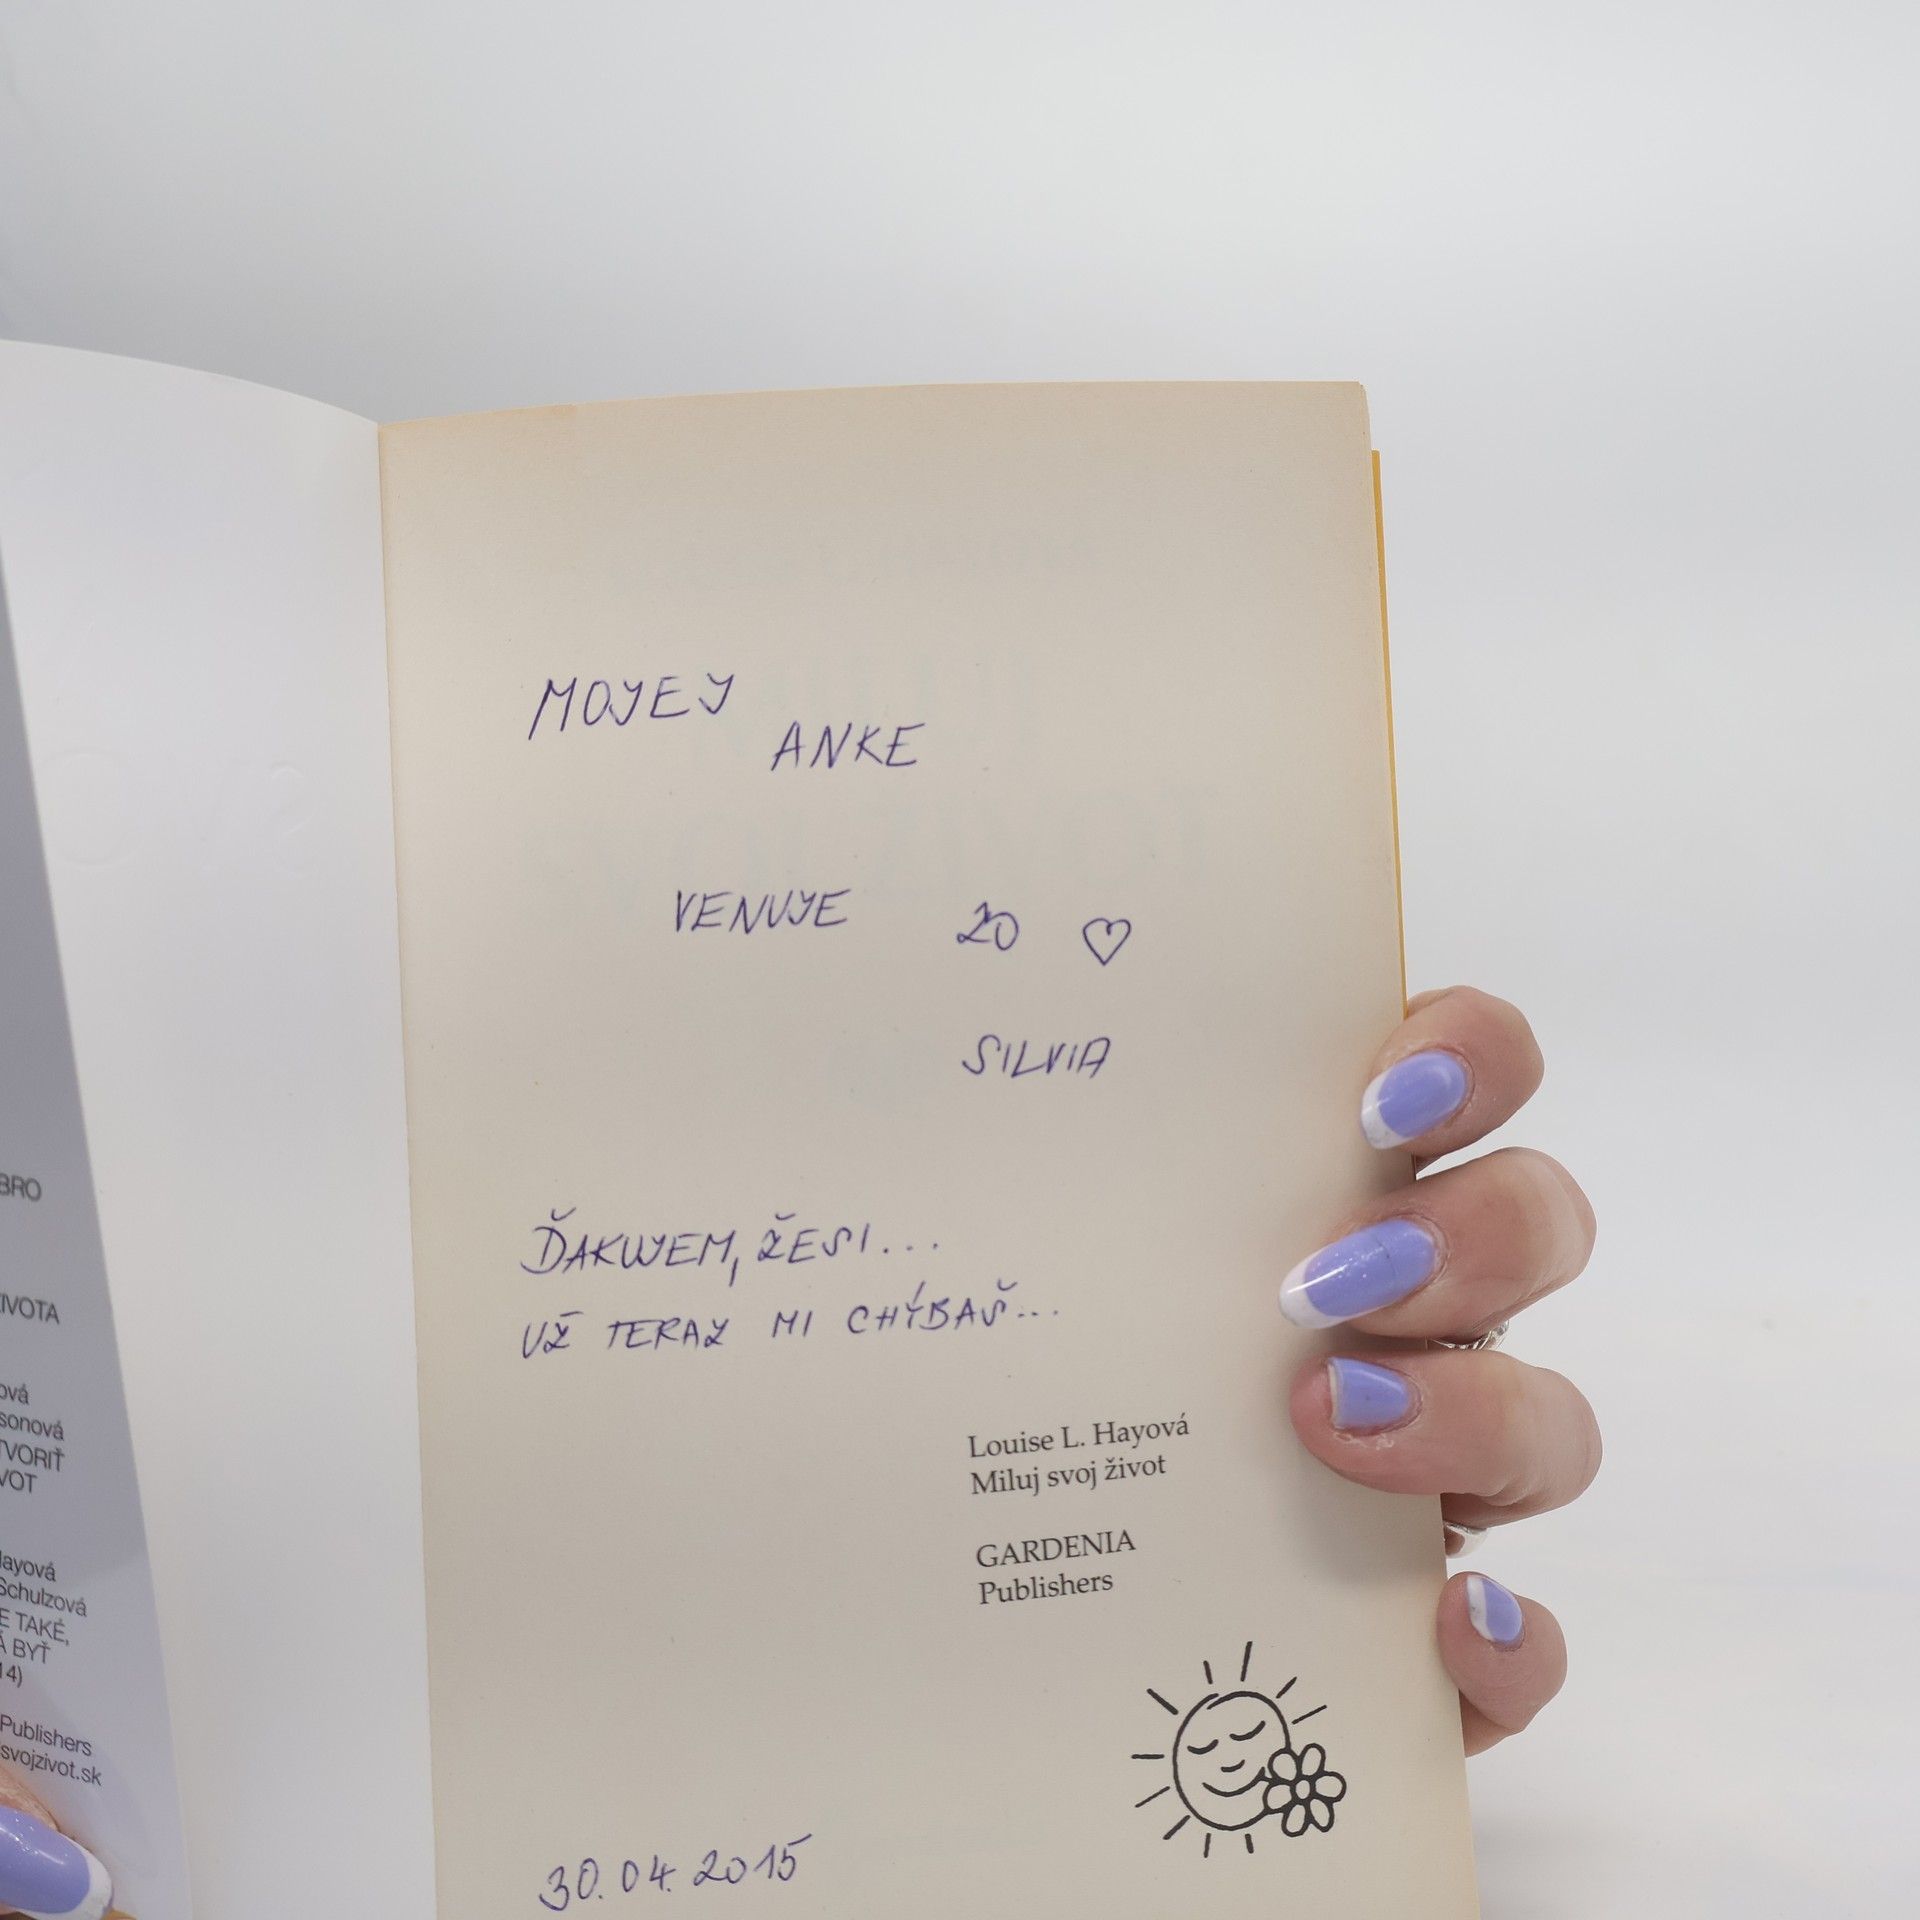 BRO
ŽIVOTA
ová
sonová
TVORIŤ
VOT
Hayová
Schulzová
E TAKÉ,
Á BYŤ
14)
Publishers
svojzivot.sk
MOJEJ
ANKE
VENUJE ZO ♡
SILVIA
ĎAKUJEM, ŽE SI...
UŽ TERAZ MI CHÝBAŠ...
Louise L. Hayová
Miluj svoj život
GARDENIA
Publishers
30.04.2015